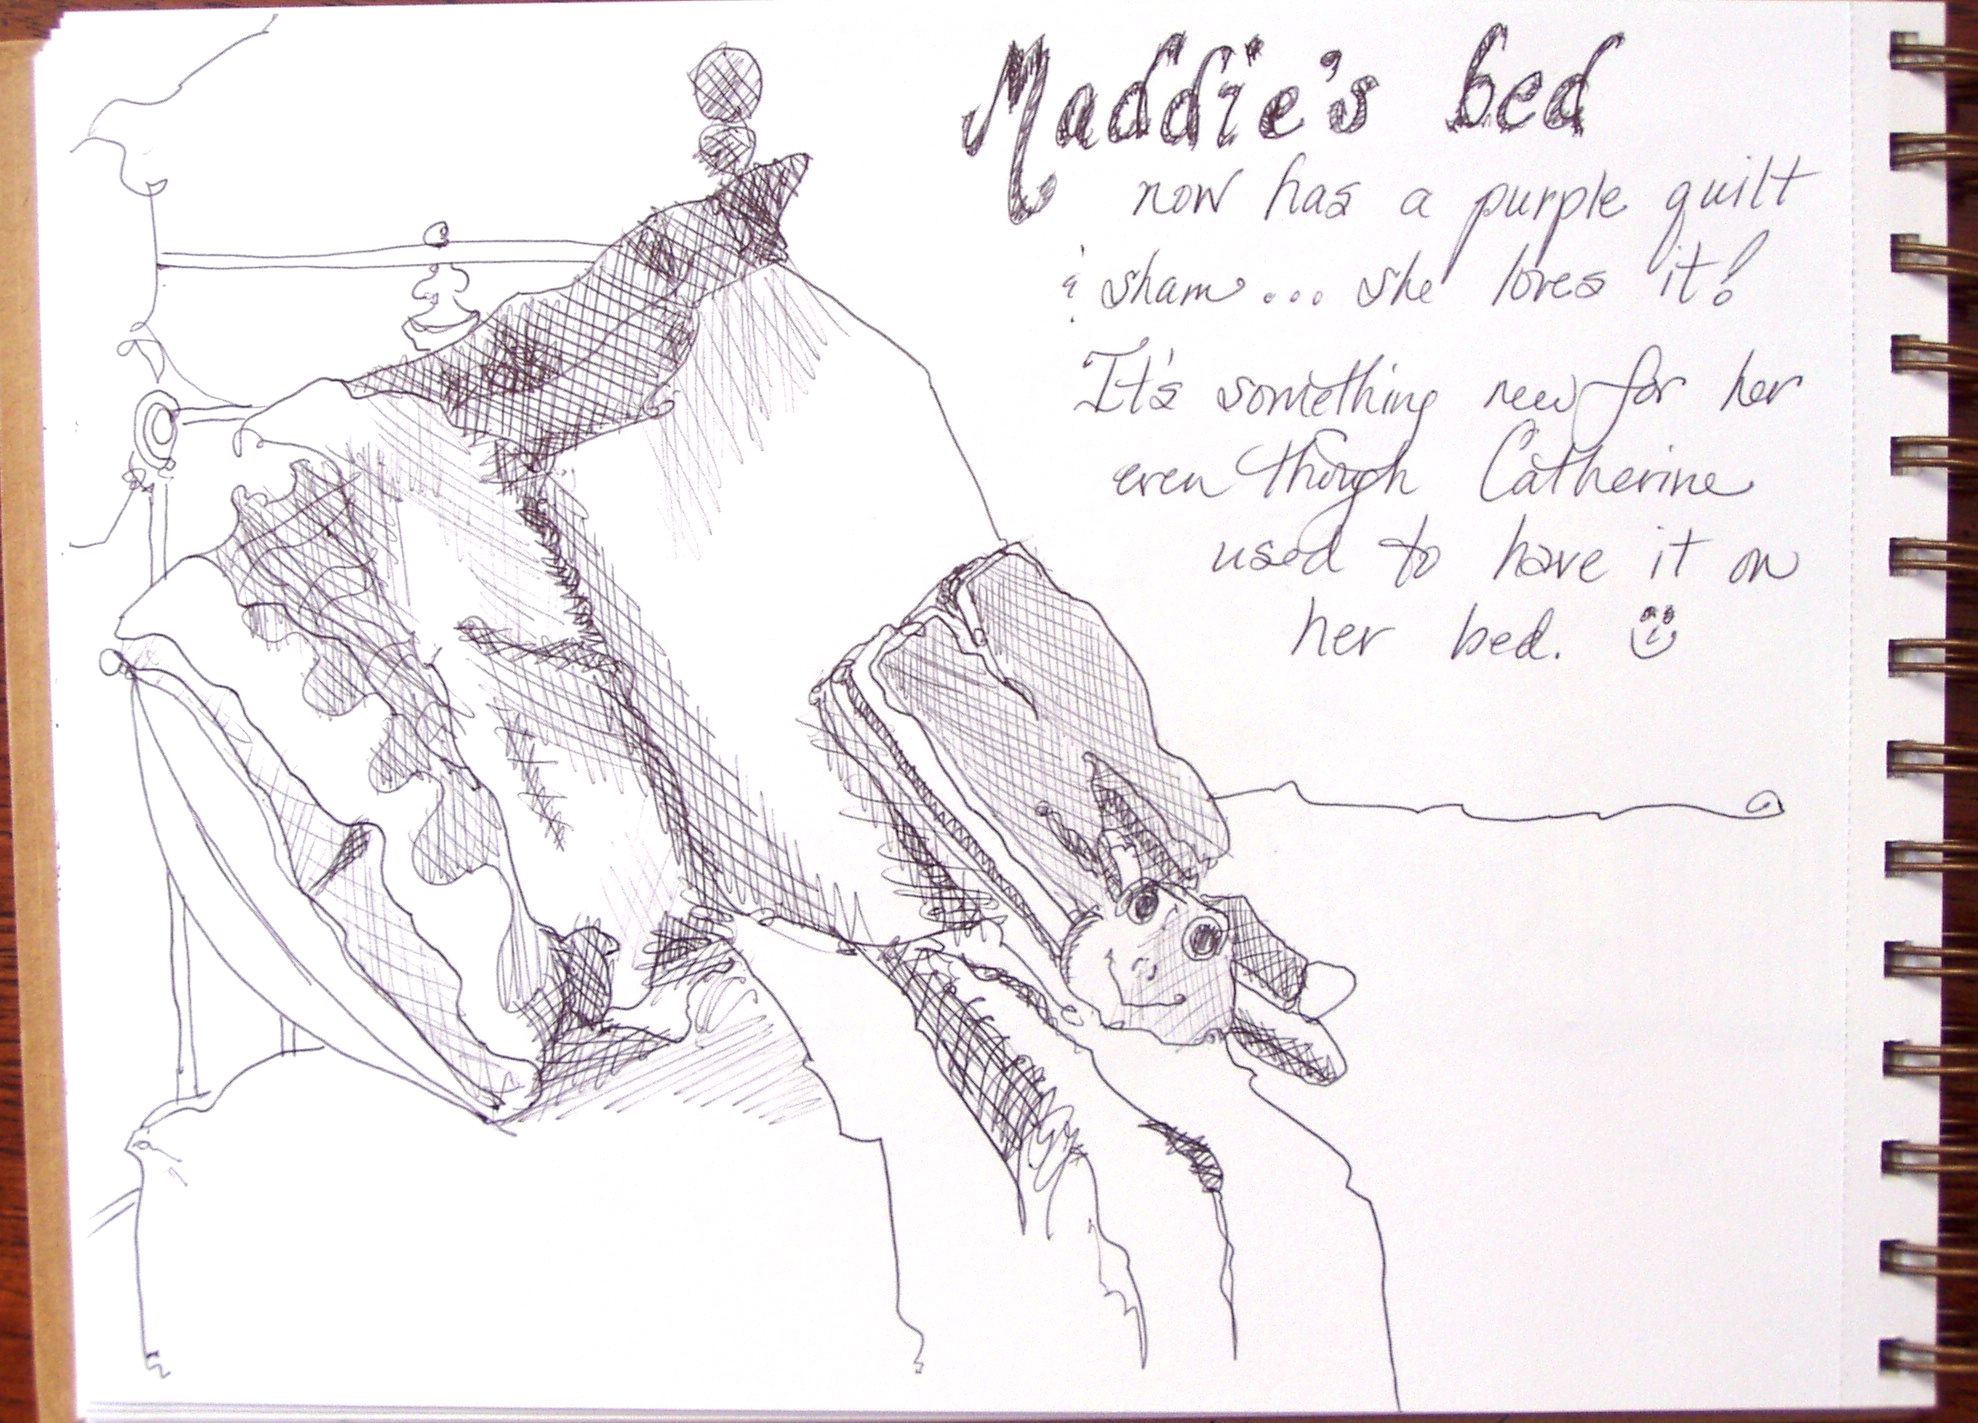 Maddie's bed
now has a purple quilt
& sham... she loves it!
It's something new for her
even though Catherine
used to have it on
her bed.